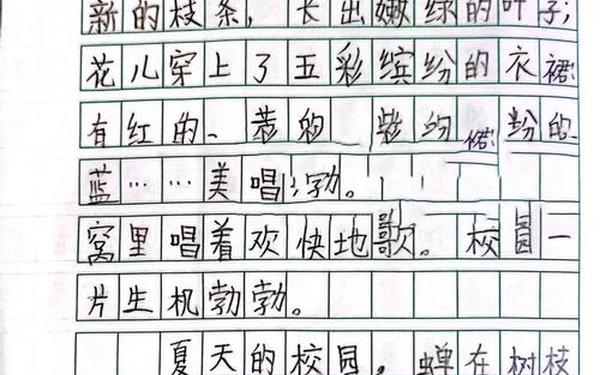 新的枝条，长出嫩绿的叶子；
花儿穿上了五彩缤纷的衣裙：
有红的、黄的、紫的、粉的、
蓝……美唱
窝里唱着欢快地歌。校园一
片生机勃勃。
夏天的校园，蝉在树枝